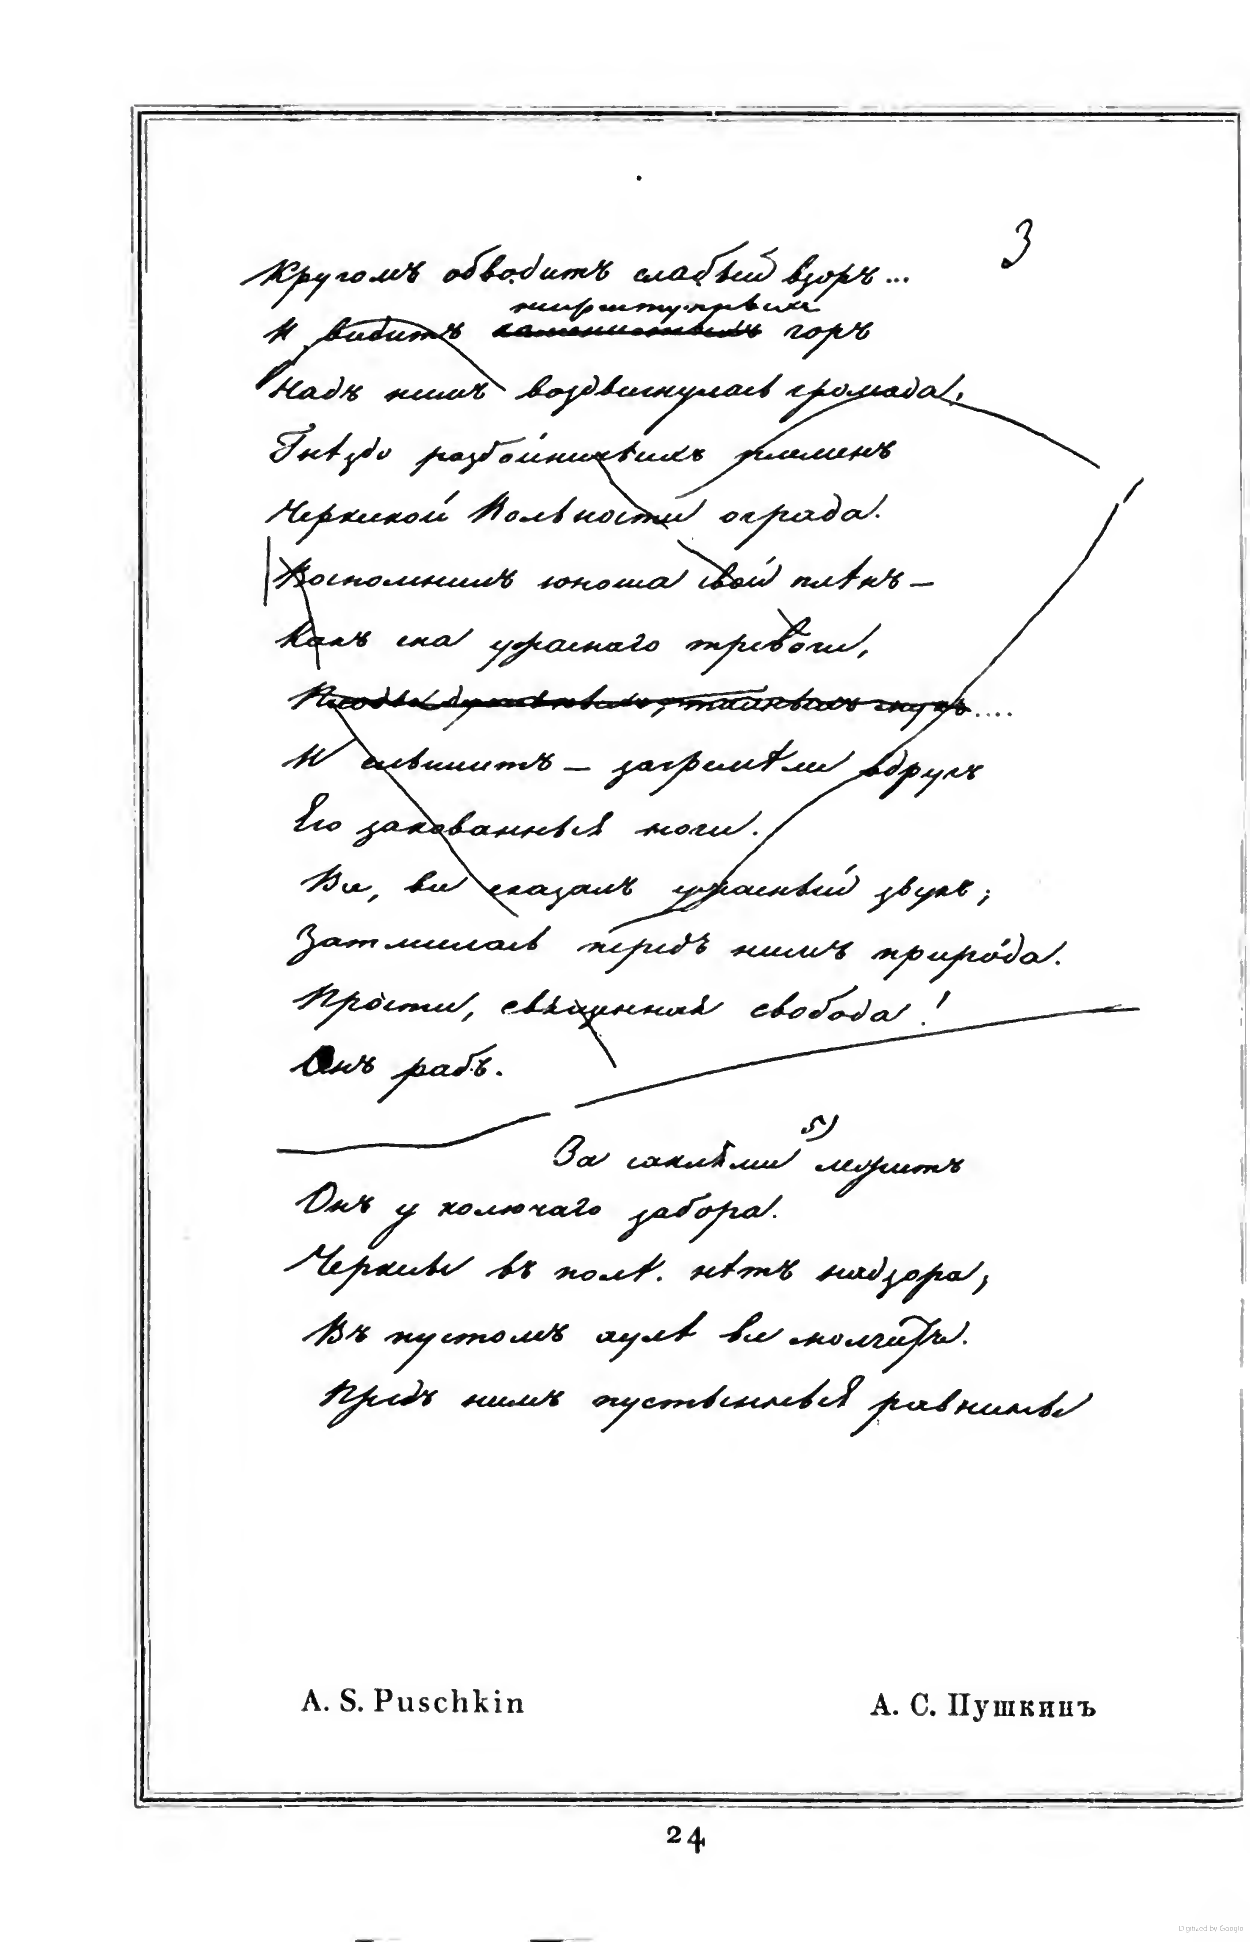 3
Кругомъ обводитъ слабый взоръ...
неприступныхъ
И видитъ каменистыхъ горъ
Надъ нимъ воздвигнулась громада,
Гнѣздо разбойничьихъ племенъ
Черкеской Вольности ограда.
Воспомнилъ юноша свой плѣнъ —
Какъ сна ужаснаго тревоги,
....
И слышитъ — загремѣли вдругъ
Его закованныя ноги.
Все, все сказалъ ужасный звукъ;
Затмилась передъ нимъ природа.
Прости, священная свобода!
Онъ рабъ.
5)
За саклями лежитъ
Онъ у колючаго забора.
Черкесы въ полѣ. нѣтъ надзора;
Въ пустомъ аулѣ все молчитъ.
Предъ нимъ пустынныя равнины
A. S. Puschkin
А. С. Пушкинъ
24
Digitized by Google